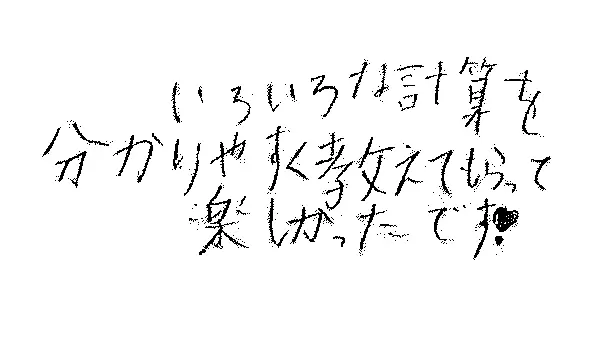 いろいろな計算を
分かりやすく教えてもらって
楽しかったです♥